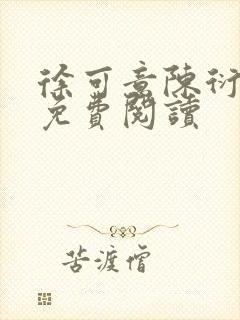 徐可意陳衍
免費閱讀
苦渡僧